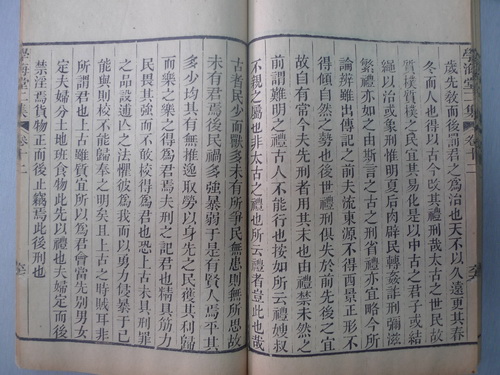 學海堂二集
卷十二
歲先敎而後罰君之為治也天不以久遠更其春
冬而人也得以古今改其禮刑哉太古之世民故
質樸質樸之民宜其易化是以中古之君子或結
繩以治或象刑惟明夏后肉辟民轉姦詐刑彌滋
繁禮亦如之由斯言之古之刑省禮亦宜略今所
論辨雖出傳記之前夫流東源不得西景正形不
得傾自然之勢也後世禮刑俱失於前先後之宜
故自有常今夫先刑者用其末也由禮禁未然之
前謂難明之禮古人不能行也按如所云禮嫂叔
不親之屬也非太古之禮也所云禮者豈此也哉
古者民少而獸多未有所爭民無患則無所思故
未有君焉後民禍多強暴弱于是有賢人焉平其
多少均其有無推逸取勞以身先之民獲其利歸
而樂之樂之得為君焉夫刑之記君也精具筋力
民畏其強而不敢校得為君也恐上古未具刑罪
之品設逋亾之法懼彼為我而以勇力侵暴于己
能與則校不能歸奉之明矣且上古之時賊耳非
所謂君也上古雖質宜所以為君會當先別男女
定夫婦分土地班食物此先以禮也夫婦定而後
禁淫焉貨物正而後止竊焉此後刑也
學海堂二集
卷十二